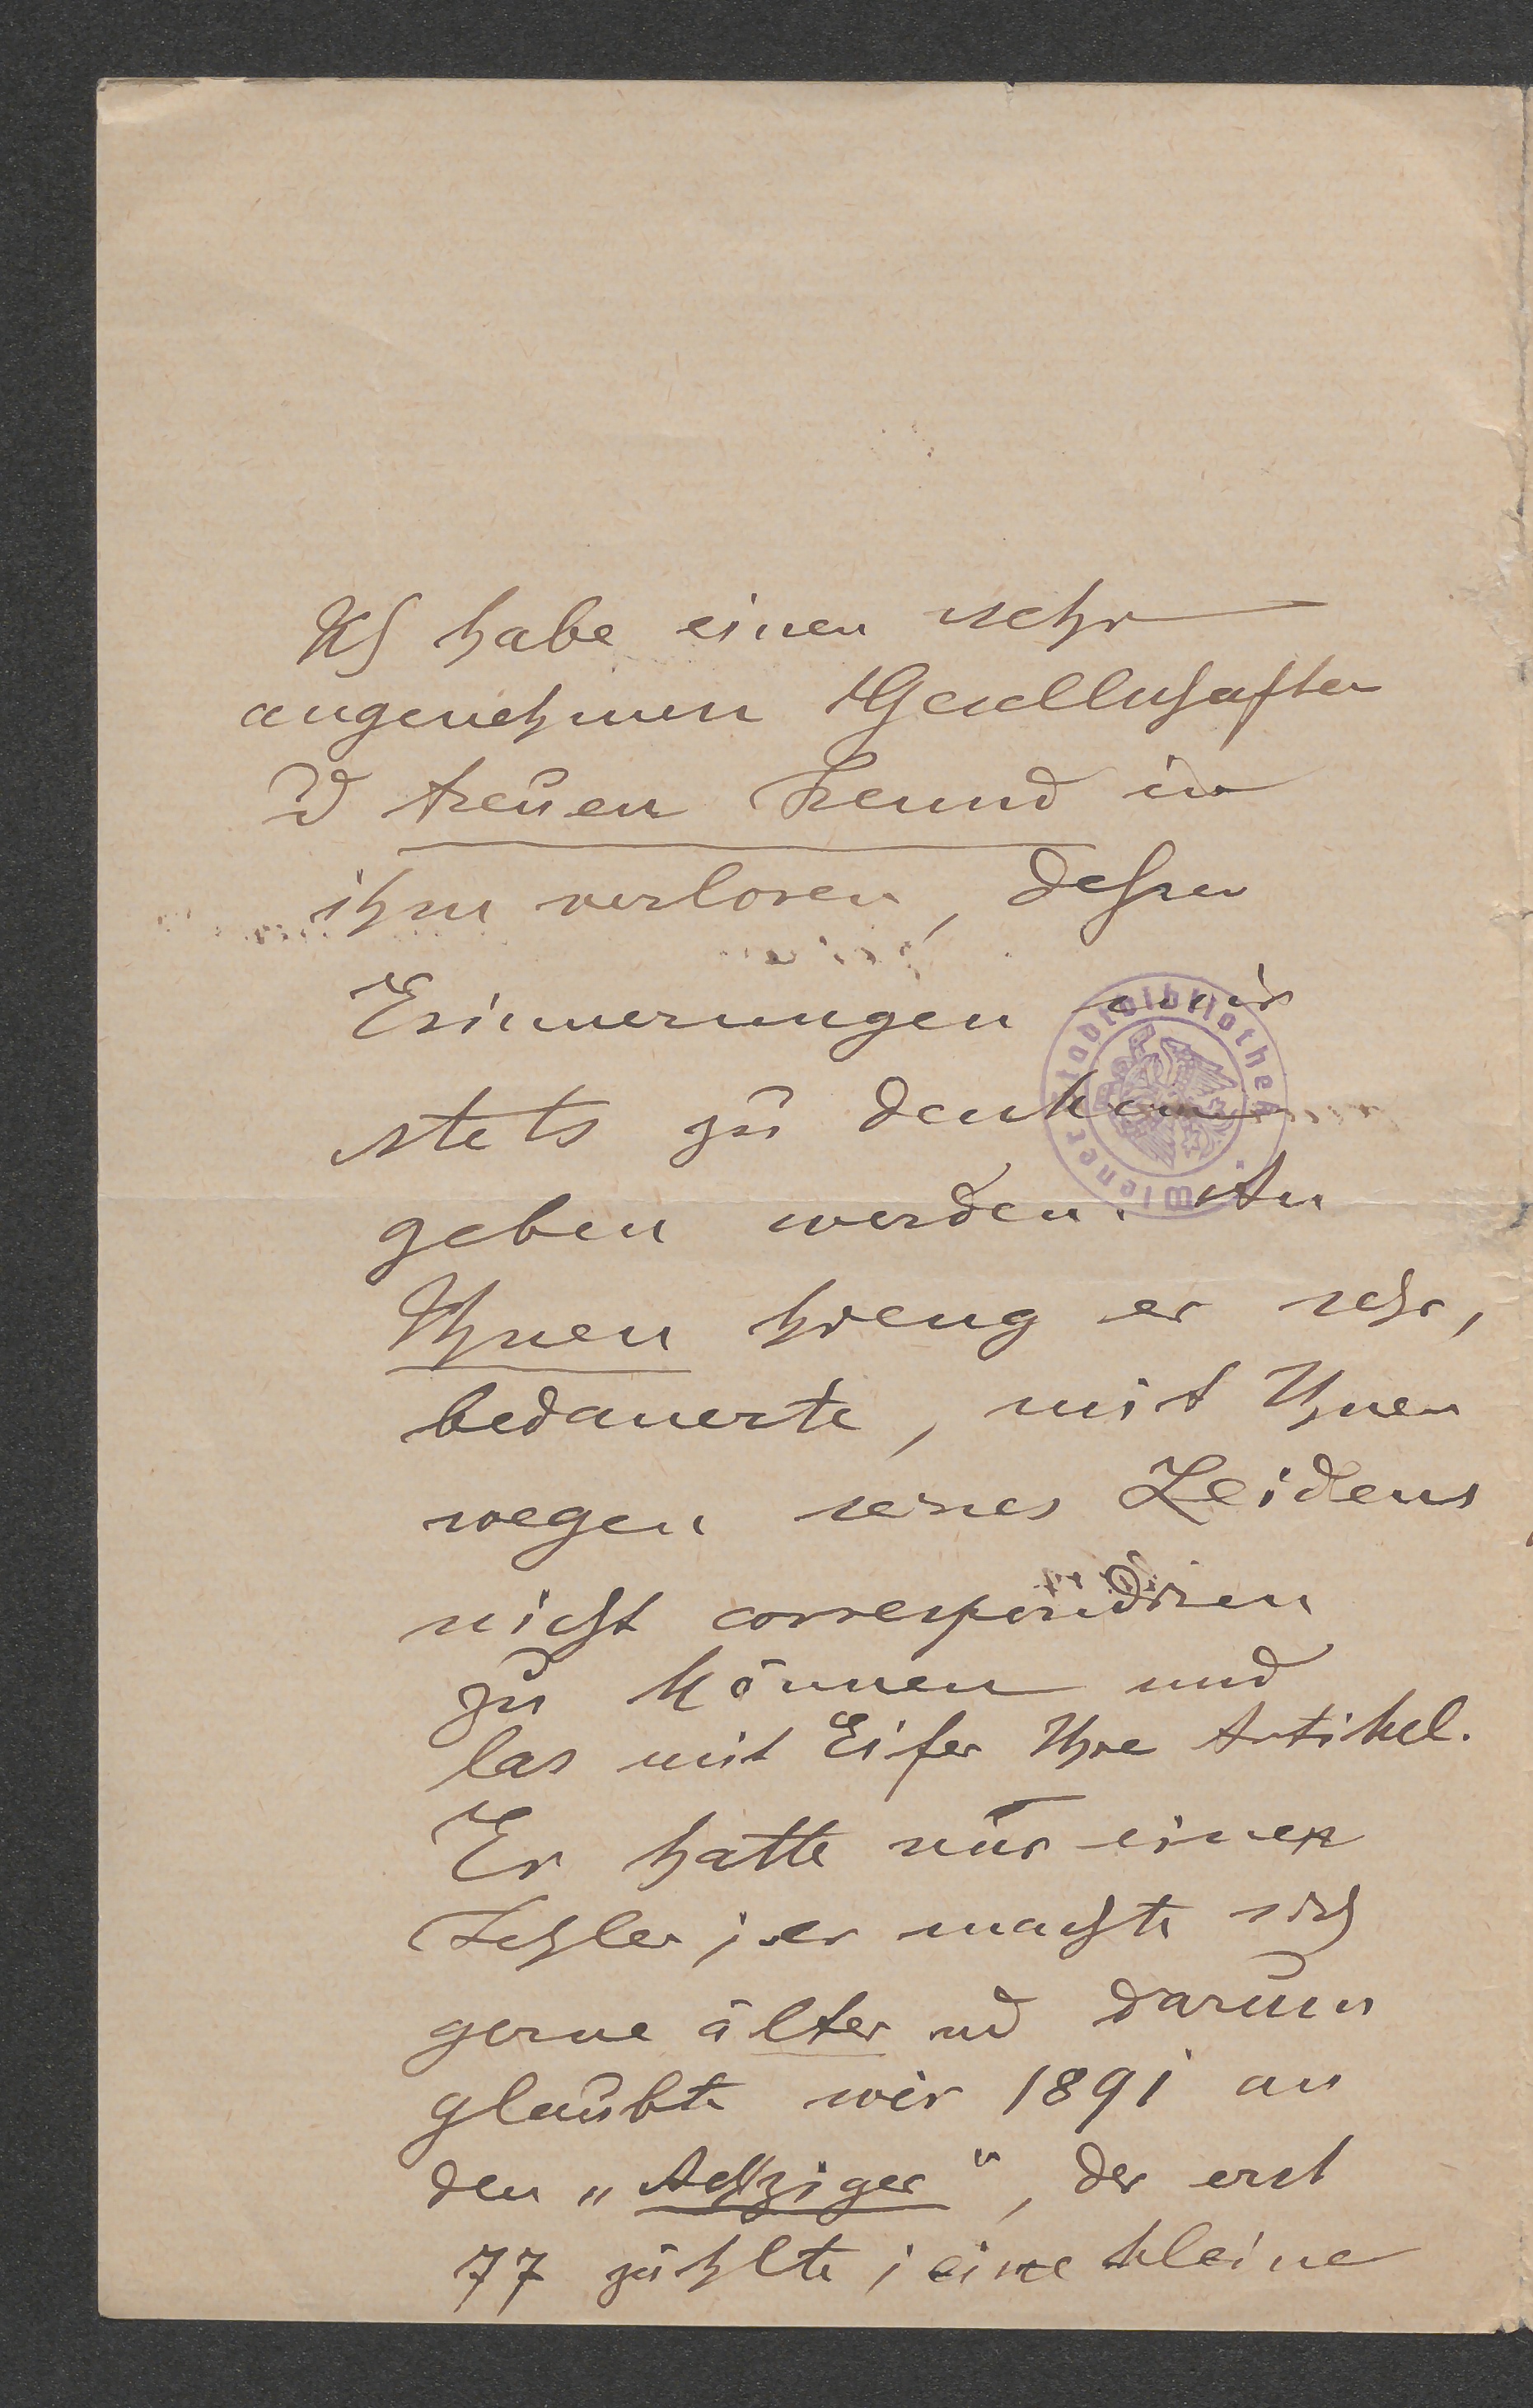 Ich habe einen sehr
angenehmen Gesellschafter
u treuen Freund in
ihm verloren, dessen
Erinnerungen mir
stets zu denken
geben werden. An
Ihnen hieng er sehr,
bedauerte, mit Ihnen
wegen seines Leidens
nicht correspondiren
zu können und
las mit Eifer Ihre Artikel.
Er hatte nur einen
Fehler; er machte sich
gerne älter ud darum
glaubte wir 1891 an
den „Achziger“, der erst
77 zählte; eine kleine
Wiener Stadtbibliothek